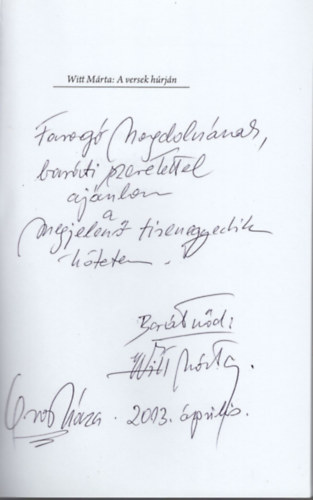 Witt Márta: A versek húrján
Faragó Magdolnának,
baráti szeretettel
ajánlom
a
megjelent tizenegyedik
kötetem.
Barátnőd:
Witt Márta.
Orosháza. 2013. április.